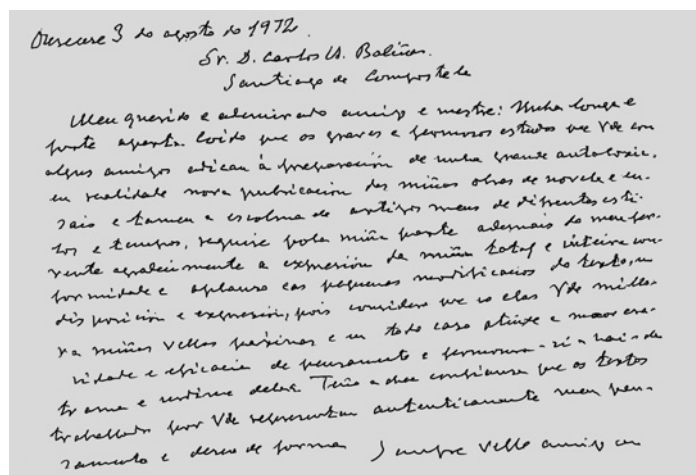 Ourense 3 de agosto de 1972.
Sr. D. Carlos A. Baliñas.
Santiago de Compostela
Meu querido e ademirado amigo e mestre: Unha longa e
forte aperta. Coido que os graves e fermosos estudos que Vde con
algus amigos adican à preparación de unha grande antoloxía,
en realidade nova pubricación das miñas obras de novela e en-
saio e tamen a escolma de artigos meus de difrentes esti-
los e tempos, require pola miña parte ademais do meu fer-
vente agradecimento a expresión da miña total e inteira con-
formidade e aplauso cas pequenas modificacios do texto, en
disposición e expresión, pois considero que co elas Vde millo-
ra miñas vellas páxinas e en todo caso atinxe a maor cra-
ridade e eficacia de pensamento e fermosura
trama e
delas. Teño a doce confianza que os textos
traballados por Vde representan autenticamente meu pen-
samento e deseo de forma Sempre vello amigo